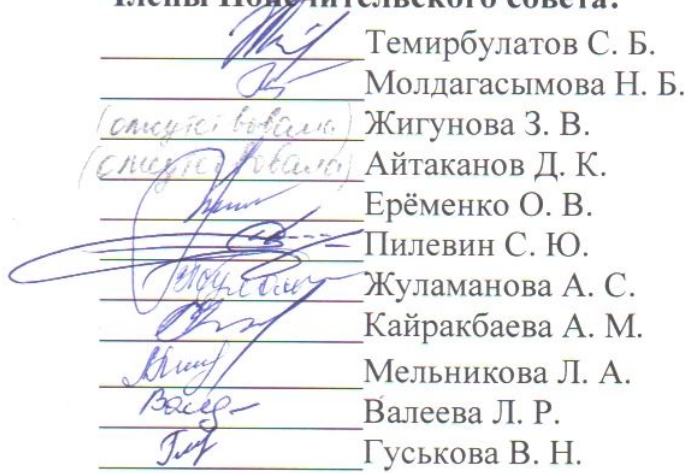 Члены Попечительского совета:
Темирбулатов С. Б.
Молдагасымова Н. Б.
(отсутствовала) Жигунова З. В.
(отсутствовала) Айтаканов Д. К.
Ерёменко О. В.
Пилевин С. Ю.
Жуламанова А. С.
Кайракбаева А. М.
Мельникова Л. А.
Валеева Л. Р.
Гуськова В. Н.